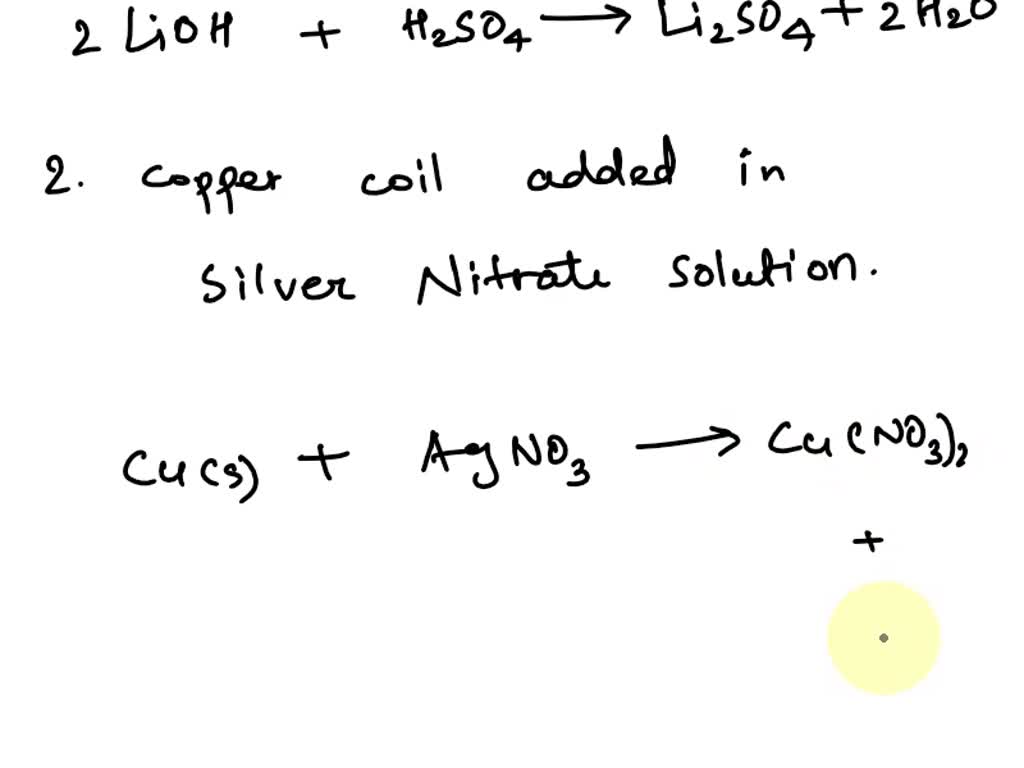 2 LiOH + H₂SO₄ ⟶ Li₂SO₄ + 2H₂O
2. copper coil added in
Silver Nitrate solution.
Cu(s) + AgNO₃ ⟶ Cu(NO₃)₂
+